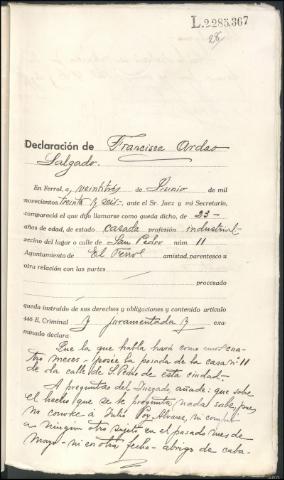 L.2285.367
Declaración de Francisca Ardao
Salgado.
En Ferrol, a veintitrés de Junio de mil
novecientos treinta y seis, ante el Sr. Juez y mi Secretario,
compareció el que dijo llamarse como queda dicho, de 23-
años de edad, de estado casada profesión industrial-
vecino del lugar o calle de San Pedro núm 11
Ayuntamiento de El Ferrol amistad, parentesco a
otra relación con las partes
procesado
queda instruído de sus derechos y obligaciones y contenido artículo
446 E. Criminal y juramentada y exa-
minada declara
Que la que habla hará como unos cua-
tro meses posée la posada de la casa nº 11
de la calle de S. Pedro de esta ciudad-
A preguntas del Juzgado añade: que sobre
el hecho que se le pregunta, nada sabe, pues
no conoce á Julio Alvarez, ni
a ningún otro sujeto en el pasado mes de
mayo - ni en otra fecha - abrigo de caba-